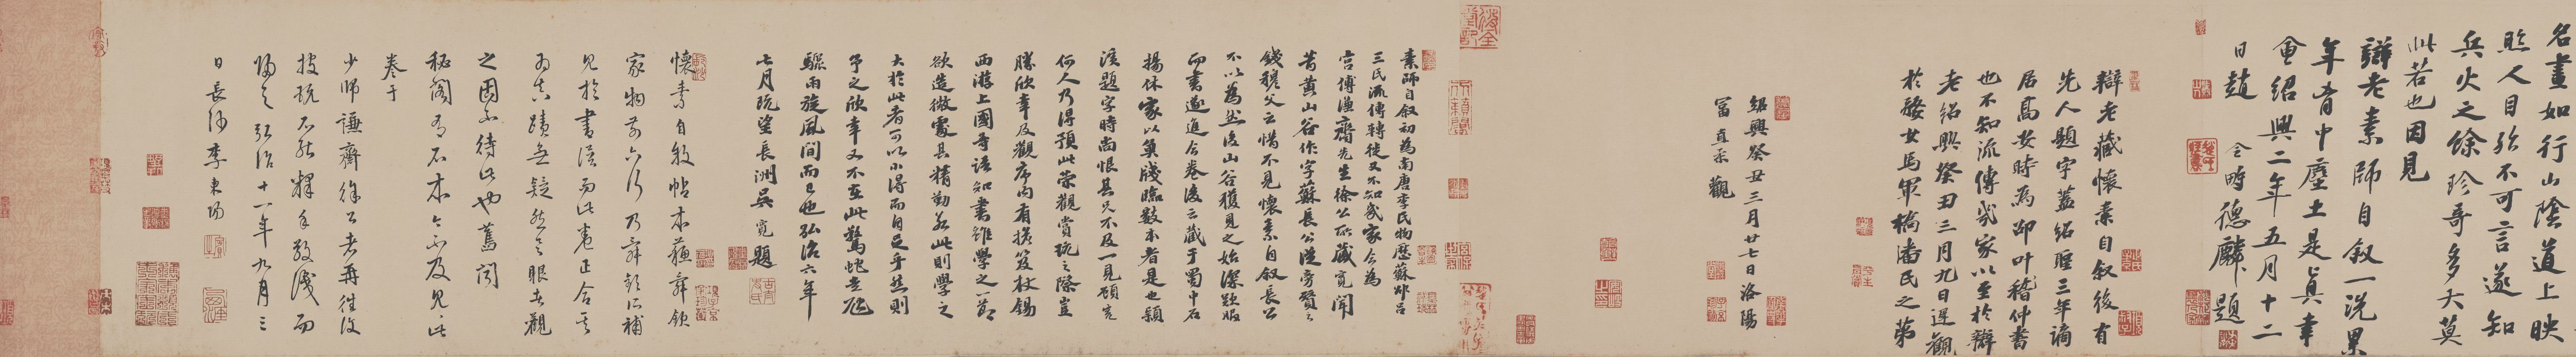 名畫如行山陰道上映
照人目殆不可言遂知
兵火之餘珍奇多大莫
此若也因見
辯老素師自叙一洗累
年胷中塵土是真幸
會紹興二年五月十二
日趙令畤德麟題
辯老藏懷素自叙後有
先人題字蓋紹聖三年謫
居高安時為邵叶稽仲書
也不知流傳幾家以至於辯
老紹興癸丑三月九日遲觀
於婺女馬軍橋潘氏之第
紹興癸丑三月廿七日洛陽
富直柔觀
素師自叙初為南唐李氏物歷蘇邵呂
三氏流傳轉徙又不知幾家今為
宫傅謙齋先生徐公所藏寬聞
昔黃山谷作字蘇長公從旁贊之
錢穆父云惜不見懷素自叙長公
不以為然後山谷獲見之始深歎服
而書遂進今卷後云藏于蜀中石
揚休家以箋臨數本者是也穎
濱題字時尚恨其兄不及一見顧寬
何人乃得預此榮觀賞玩之際豈
勝欣幸及觀序內有擔笈杖錫
西遊上國等語知書雖學之一藝
欲造微處其精勤若此則學之
大於此者可以小得而自足乎然則
予之欣幸又不在此驚蛇走虺
驟雨旋風間而已也弘治六年
七月既望長洲吳寬題
懷素自敘帖本蘇舜欽
家物前六行乃舜欽所補
見於書譜而此卷正合其
為真蹟無疑然具眼者觀
之固不待此也舊聞
秘閣有石本今不及見此
卷于
少師謙齋徐公者再往復
披玩不能釋手敬識而
歸之弘治十一年九月三
日長沙李東陽